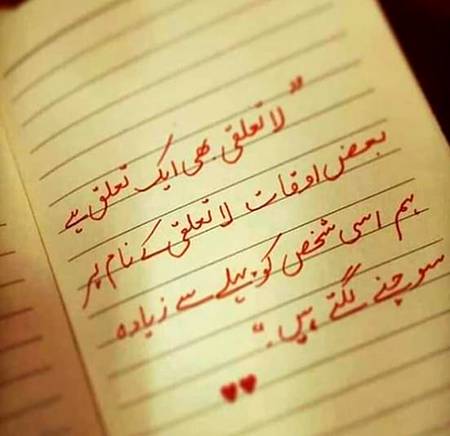 "لا تعلقی بھی ایک تعلق ہے
بعض اوقات لا تعلقی کے نام پر
ہم اسی شخص کو پہلے سے زیادہ
سوچنے لگتے ہیں۔"